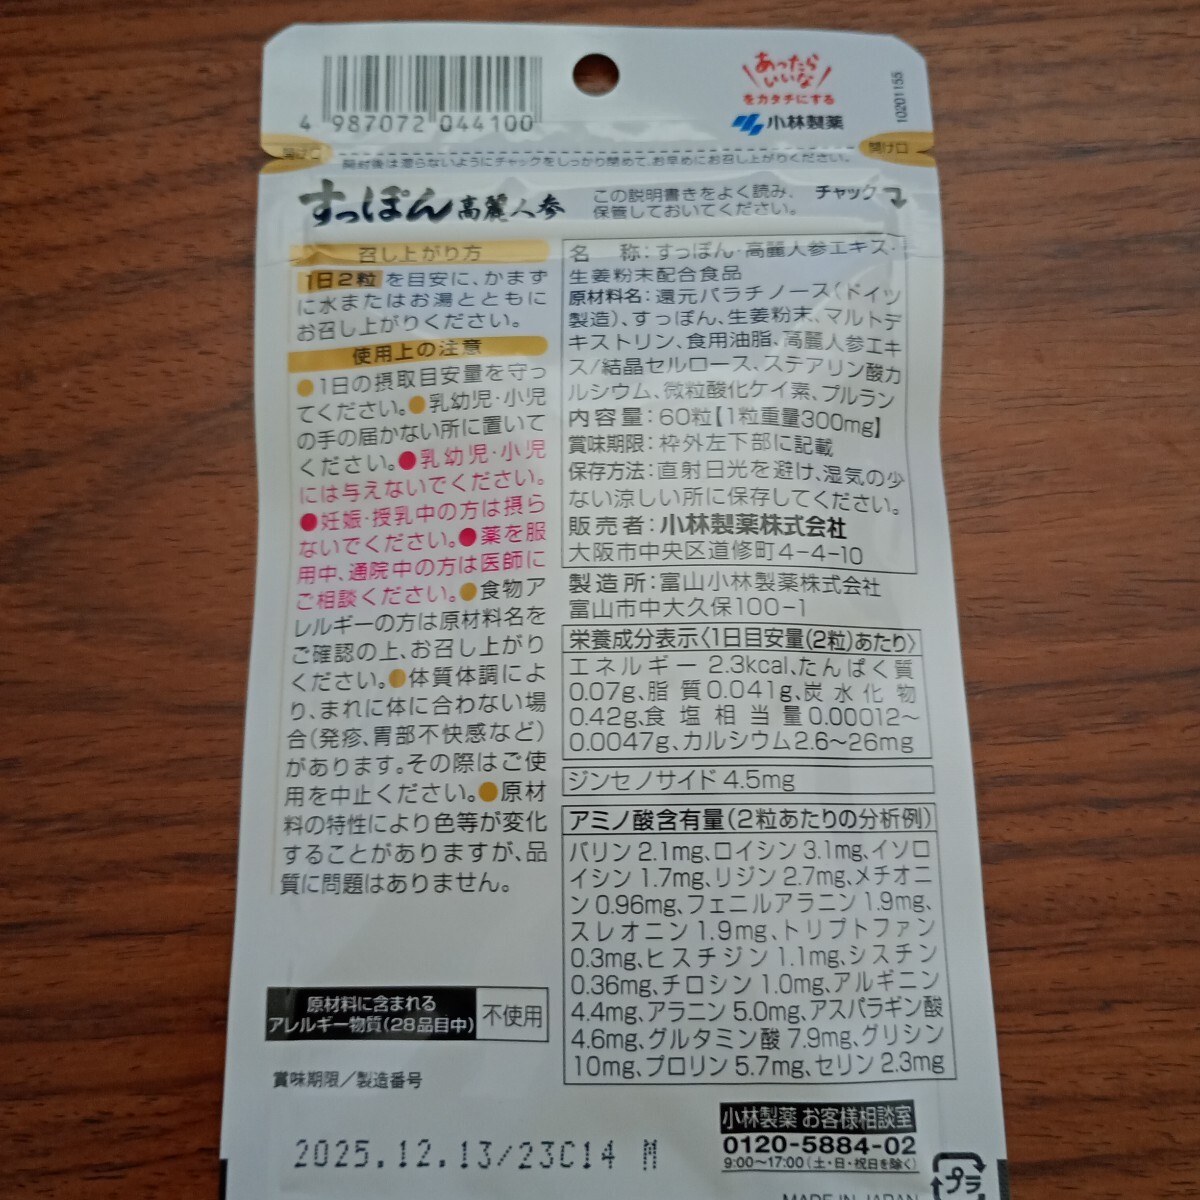 4 987072 044100
あったら
いいな
をカタチにする
小林製薬
10201155
開け口
開け口
開封後は湿らないようにチャックをしっかり閉めて、お早めにお召し上がりください。
すっぽん高麗人参
この説明書きをよく読み、
保管しておいてください。
チャック
召し上がり方
1日2粒を目安に、かまず
に水またはお湯とともに
お召し上がりください。
使用上の注意
●1日の摂取目安量を守っ
てください。●乳幼児・小児
の手の届かない所に置いて
ください。●乳幼児・小児
には与えないでください。
●妊娠・授乳中の方は摂ら
ないでください。●薬を服
用中、通院中の方は医師に
ご相談ください。●食物ア
レルギーの方は原材料名を
ご確認の上、お召し上がり
ください。●体質体調によ
り、まれに体に合わない場
合(発疹、胃部不快感など)
があります。その際はご使
用を中止ください。●原材
料の特性により色等が変化
することがありますが、品
質に問題はありません。
原材料に含まれる
アレルギー物質(28品目中)
不使用
賞味期限/製造番号
2025.12.13/23C14 M
名 称:すっぽん・高麗人参エキス・
生姜粉末配合食品
原材料名:還元パラチノース(ドイツ
製造)、すっぽん、生姜粉末、マルトデ
キストリン、食用油脂、高麗人参エキ
ス/結晶セルロース、ステアリン酸カ
ルシウム、微粒酸化ケイ素、プルラン
内容量:60粒【1粒重量300mg】
賞味期限:枠外左下部に記載
保存方法:直射日光を避け、湿気の少
ない涼しい所に保存してください。
販売者:小林製薬株式会社
大阪市中央区道修町4-4-10
製造所:富山小林製薬株式会社
富山市中大久保100-1
栄養成分表示〈1日目安量(2粒)あたり〉
エネルギー2.3kcal、たんぱく質
0.07g、脂質0.041g、炭水化物
0.42g、食塩相当量0.00012~
0.0047g、カルシウム2.6~26mg
ジンセノサイド4.5mg
アミノ酸含有量(2粒あたりの分析例)
バリン2.1mg、ロイシン3.1mg、イソロ
イシン1.7mg、リジン2.7mg、メチオニ
ン0.96mg、フェニルアラニン1.9mg、
スレオニン1.9mg、トリプトファン
0.3mg、ヒスチジン1.1mg、シスチン
0.36mg、チロシン1.0mg、アルギニン
4.4mg、アラニン5.0mg、アスパラギン酸
4.6mg、グルタミン酸7.9mg、グリシン
10mg、プロリン5.7mg、セリン2.3mg
小林製薬 お客様相談室
0120-5884-02
9:00~17:00(土・日・祝日を除く)
プラ
MADE IN JAPAN